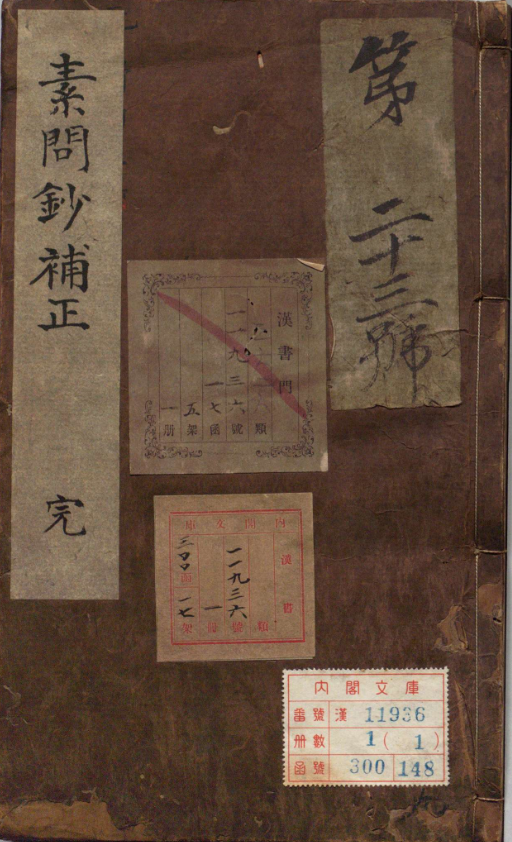 第二十三號
素問鈔補正 完
漢書門
類
一一九三六號
一七函
五架
一册
內閣文庫
漢書
類
一一九三六號
一冊
三〇〇函
一七架
內閣文庫
番號 漢 11936
冊數 1 ( 1 )
函號 300 148